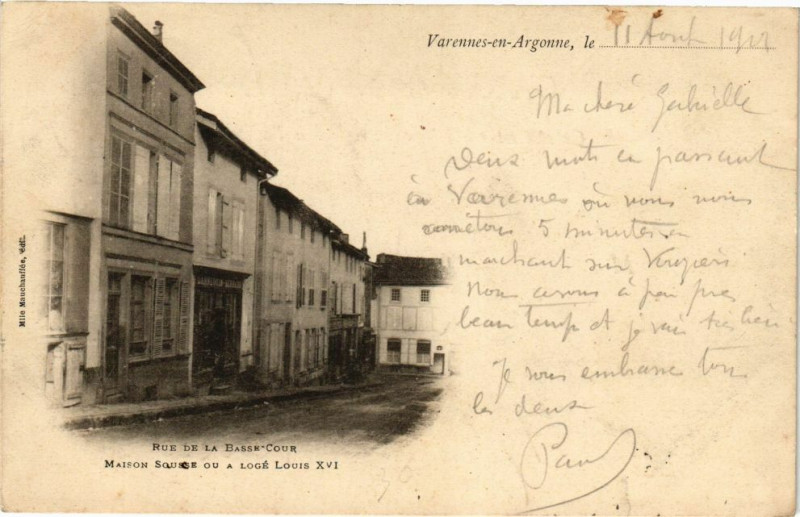 Varennes-en-Argonne, le 11 Aout 1902
Ma chère Gabrielle
Deux mots en passant
à Varennes où nous nous
arrêtons 5 minutes en
marchant sur Vouziers
Nous avons à peu près
beau temps et je vais très bien
Je vous embrasse tous
les deux
Paul
Mlle Mauchauffée, édit.
RUE DE LA BASSE-COUR
MAISON OU A LOGÉ LOUIS XVI